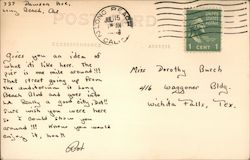 737 Dawson Ave,
Long Beach, Cal
POST CARD
LONG BEACH
JUL 15
CALIF.
1 CENT 1
Gives you an idea of
what its like here. The
pier is one mile around!!!
That street going up from
the auditorium is Long
Beach Blvd and goes into
LA. Really a good city, Dot!!
Sure wish you were here
so I could show you
around!!! Know you would
enjoy it, hon!!
Bob
Miss Dorothy Burch
416 Waggoner Bldg.
Wichita Falls, Tex.